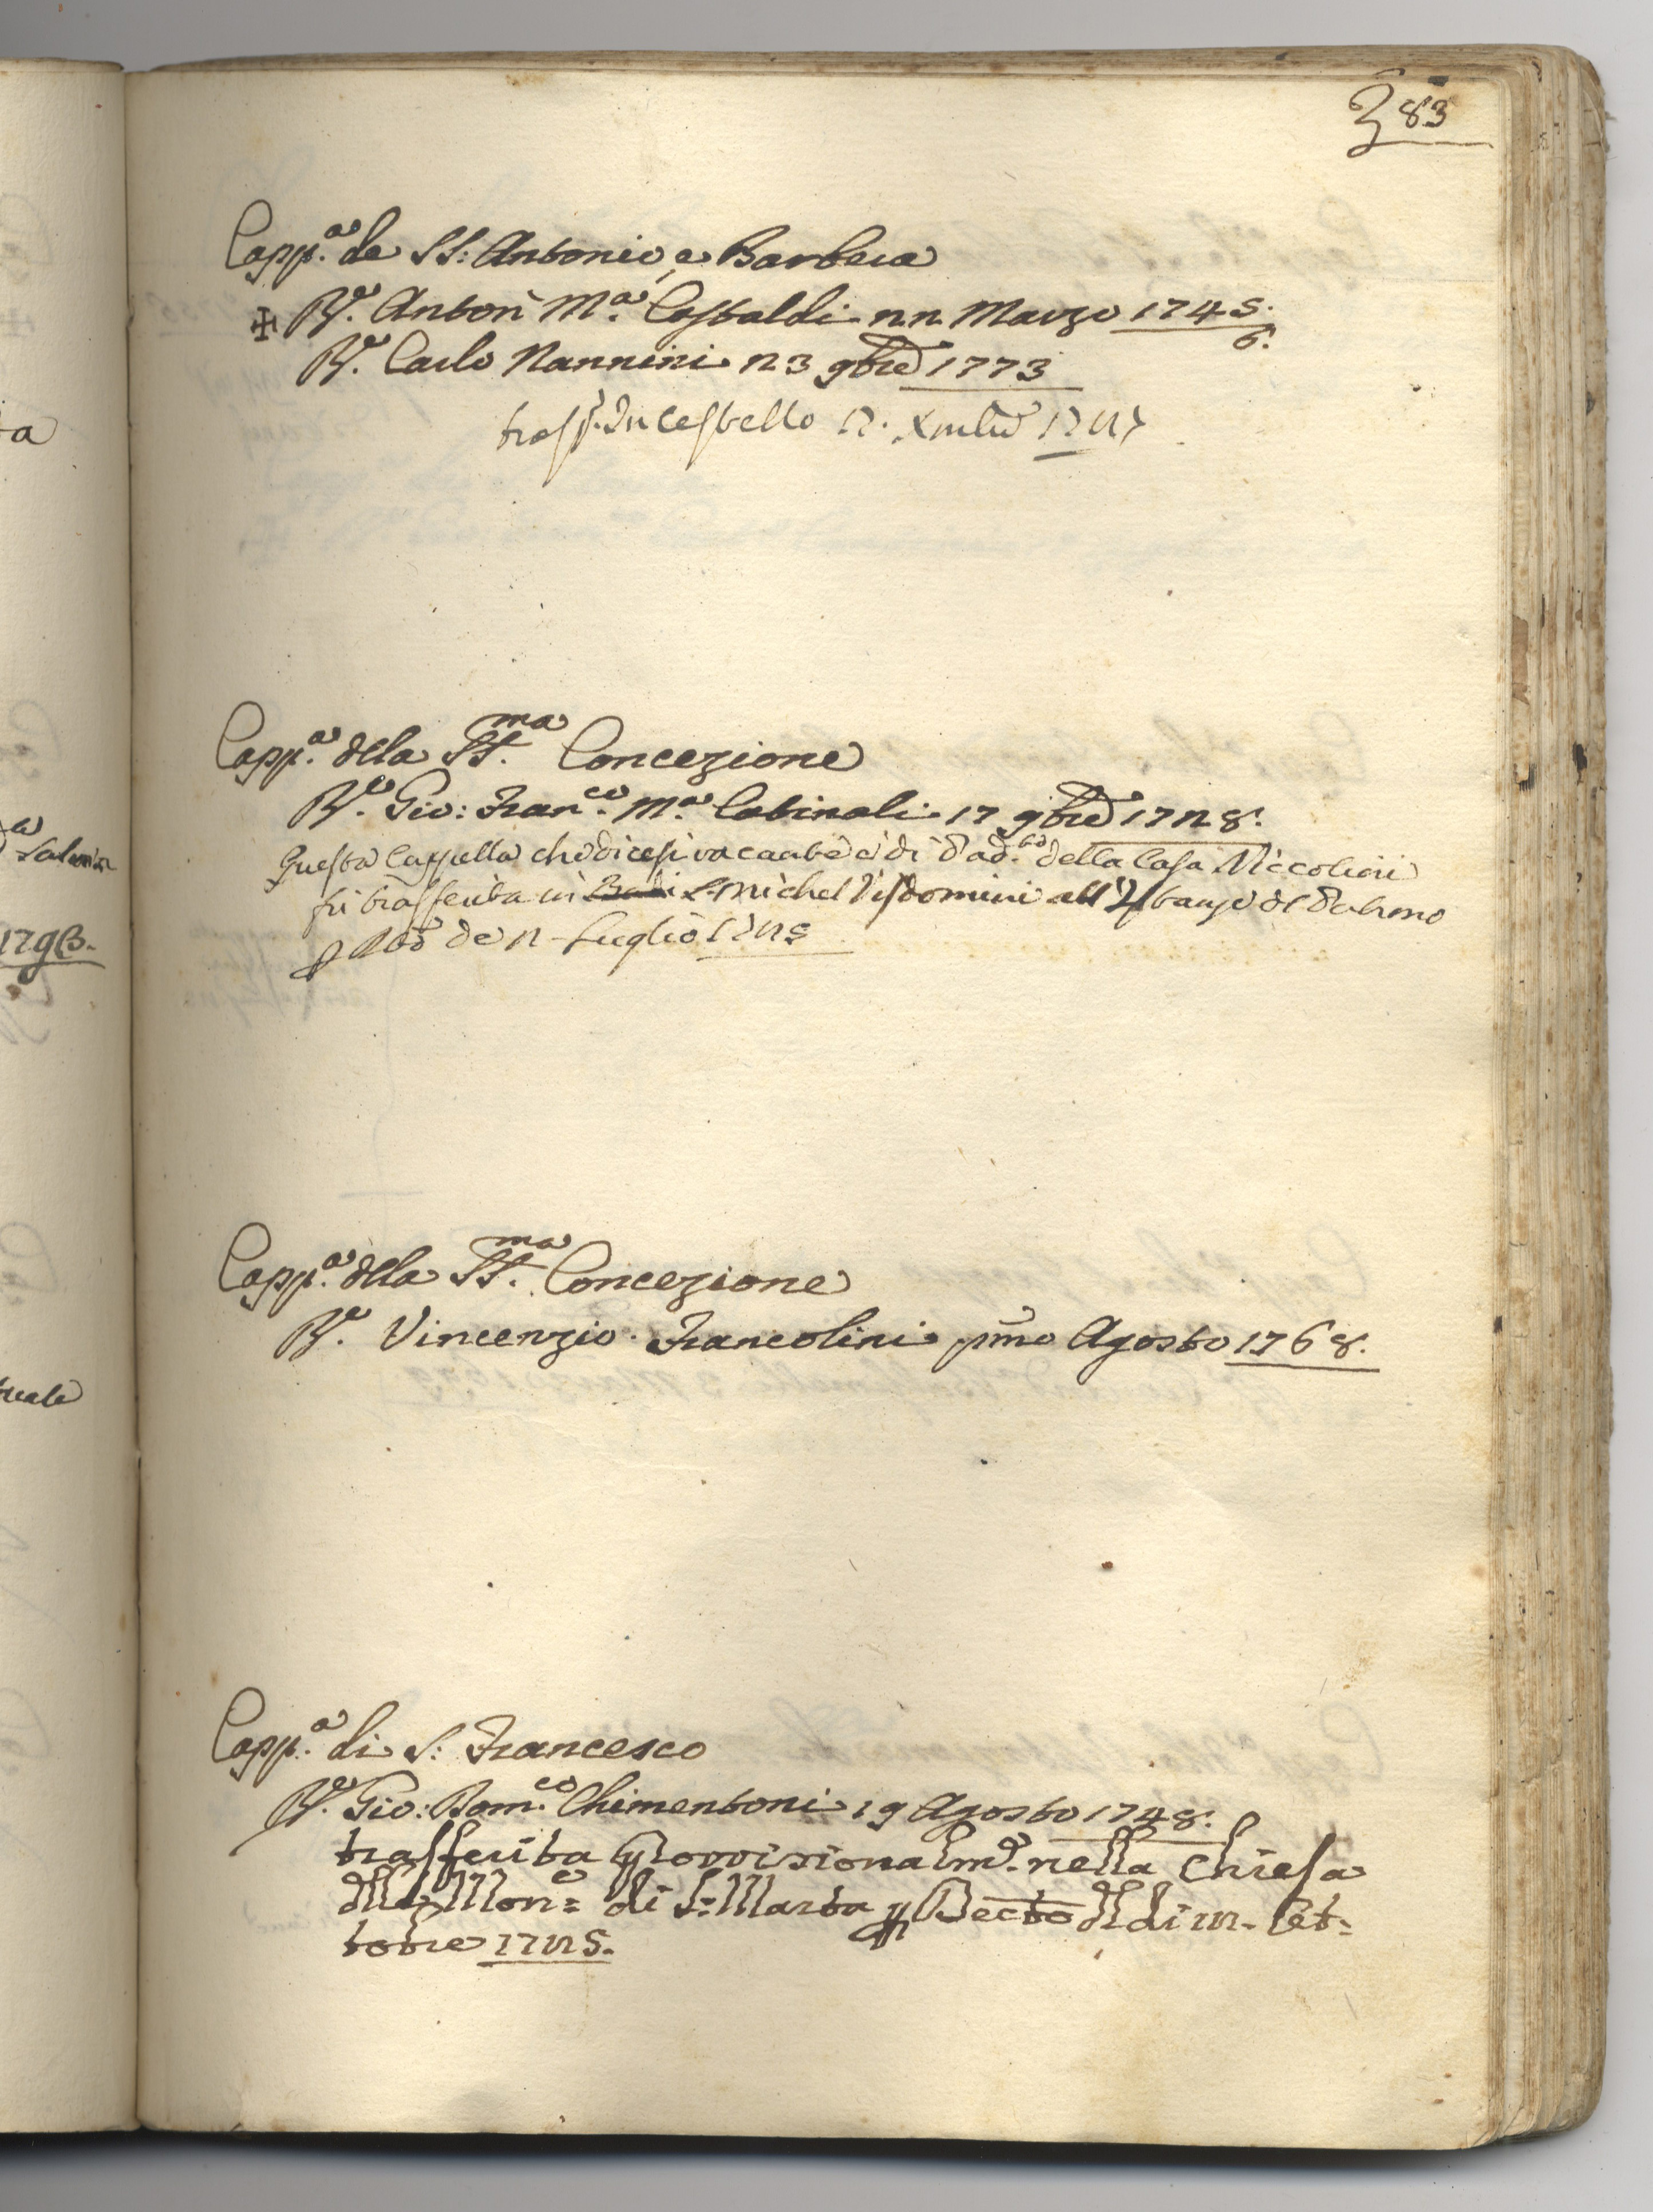 283
Capp.a de SS: Antonio, e Barbera
✠ R.e Anton M.a Castaldi 22 Marzo 1745.
6.
R.e Carlo Nannini 23 9bre 1773
trasf. In Cestello 17. Xmbre 1787
Capp.a della SS.ma Concezione
R.e Gio: Fran.co M.a Catinali 17 9bre 1728.
Questa Cappella che dicesi vacante è di della Casa Niccolini
fù trasferita in S. Michel Visdomini
de 12 Luglio 1785
Capp.a della SS.ma Concezione
R.e Vincenzio Francolini pmo Agosto 1768.
Capp.a di S: Francesco
R.e Gio: Dom.co Chimentoni 19 Agosto 1748.
trasferita provvisionalm.e nella Chiesa
delle Mon.e di S: Marta p Decto del di 12. Ot=
tobre 1785.
a
Salvini
179